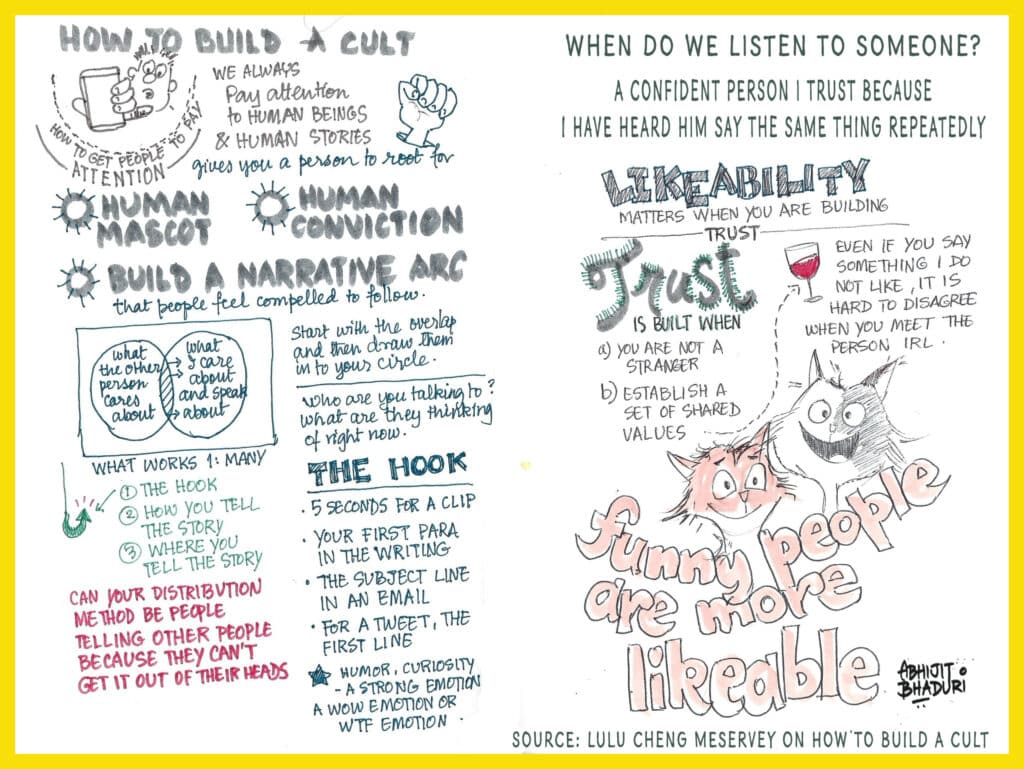 HOW TO BUILD A CULT
HOW TO GET PEOPLE TO PAY
ATTENTION
WE ALWAYS
Pay attention
to HUMAN BEINGS
& HUMAN STORIES
gives you a person to root for
HUMAN
MASCOT
HUMAN
CONVICTION
BUILD A NARRATIVE ARC
that people feel compelled to follow.
what
the other
person
cares
about
what
I care
about
and speak
about
Start with the overlap
and then draw them
in to your circle.
Who are you talking to?
what are they thinking
of right now.
WHAT WORKS 1: MANY
① THE HOOK
② HOW YOU TELL
THE STORY
③ WHERE YOU
TELL THE STORY
CAN YOUR DISTRIBUTION
METHOD BE PEOPLE
TELLING OTHER PEOPLE
BECAUSE THEY CAN'T
GET IT OUT OF THEIR HEADS
THE HOOK
• 5 SECONDS FOR A CLIP
• YOUR FIRST PARA
IN THE WRITING
• THE SUBJECT LINE
IN AN EMAIL
• FOR A TWEET, THE
FIRST LINE
★ HUMOR, CURIOSITY
- A STRONG EMOTION
A WOW EMOTION OR
WTF EMOTION.
WHEN DO WE LISTEN TO SOMEONE?
A CONFIDENT PERSON I TRUST BECAUSE
I HAVE HEARD HIM SAY THE SAME THING REPEATEDLY
LIKEABILITY
MATTERS WHEN YOU ARE BUILDING
TRUST
Trust
IS BUILT WHEN
a) YOU ARE NOT A
STRANGER
b) ESTABLISH A
SET OF SHARED
VALUES
EVEN IF YOU SAY
SOMETHING I DO
NOT LIKE, IT IS
HARD TO DISAGREE
WHEN YOU MEET THE
PERSON IRL.
funny people
are more
likeable
ABHIJIT
BHADURI
SOURCE: LULU CHENG MESERVEY ON HOW TO BUILD A CULT